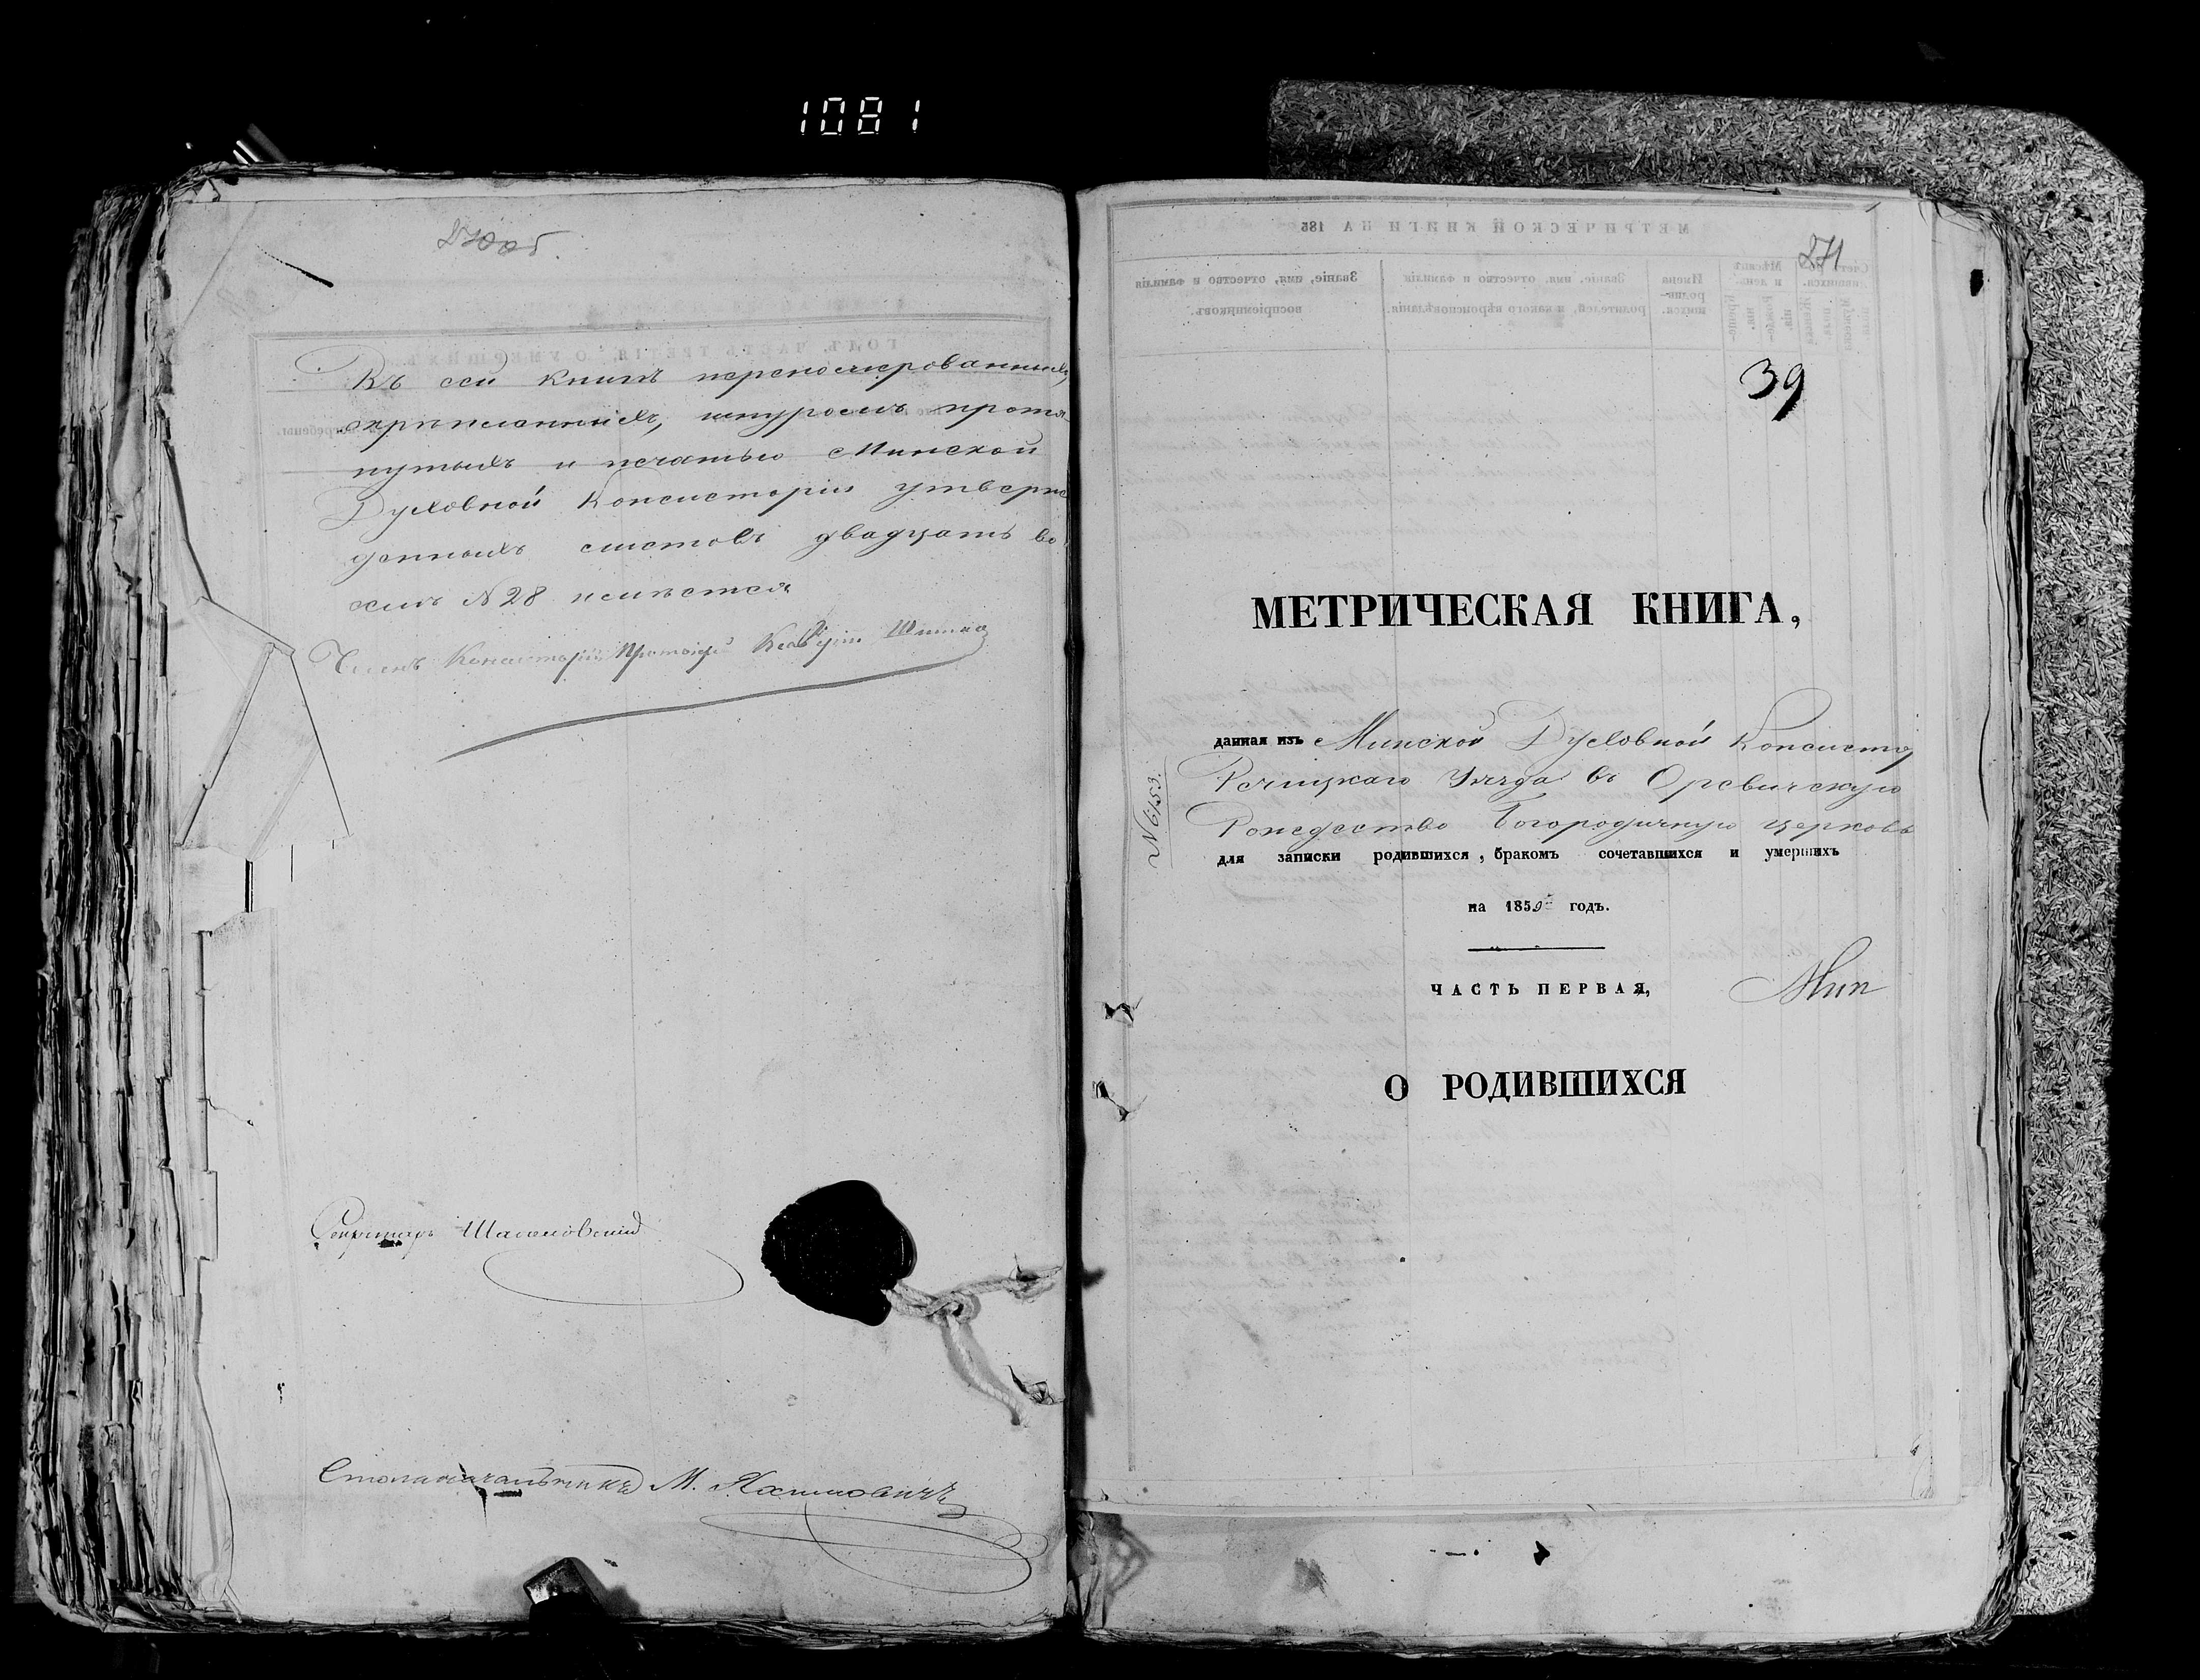 1081
270об.
Въ сей книгѣ перенумерованныхъ,
скрѣпленныхъ, шнуромъ протя-
нутыхъ и печатью Минской
Духовной Консисторіи утверж-
денныхъ листовъ двадцать во-
семь №28 имѣется
Членъ Консисторіи Протоіерей
Секретарь
Столоначальникъ М.
271
39
МЕТРИЧЕСКАЯ КНИГА,
данная изъ Минской Духовной Консисто
Речицкаго Уѣзда въ Оревичскую
Рождество Богородичную церковь
№6153.
для записки родившихся, бракомъ сочетавшихся и умершихъ
на 1859 годъ.
ЧАСТЬ ПЕРВАЯ,
Мин
О РОДИВШИХСЯ